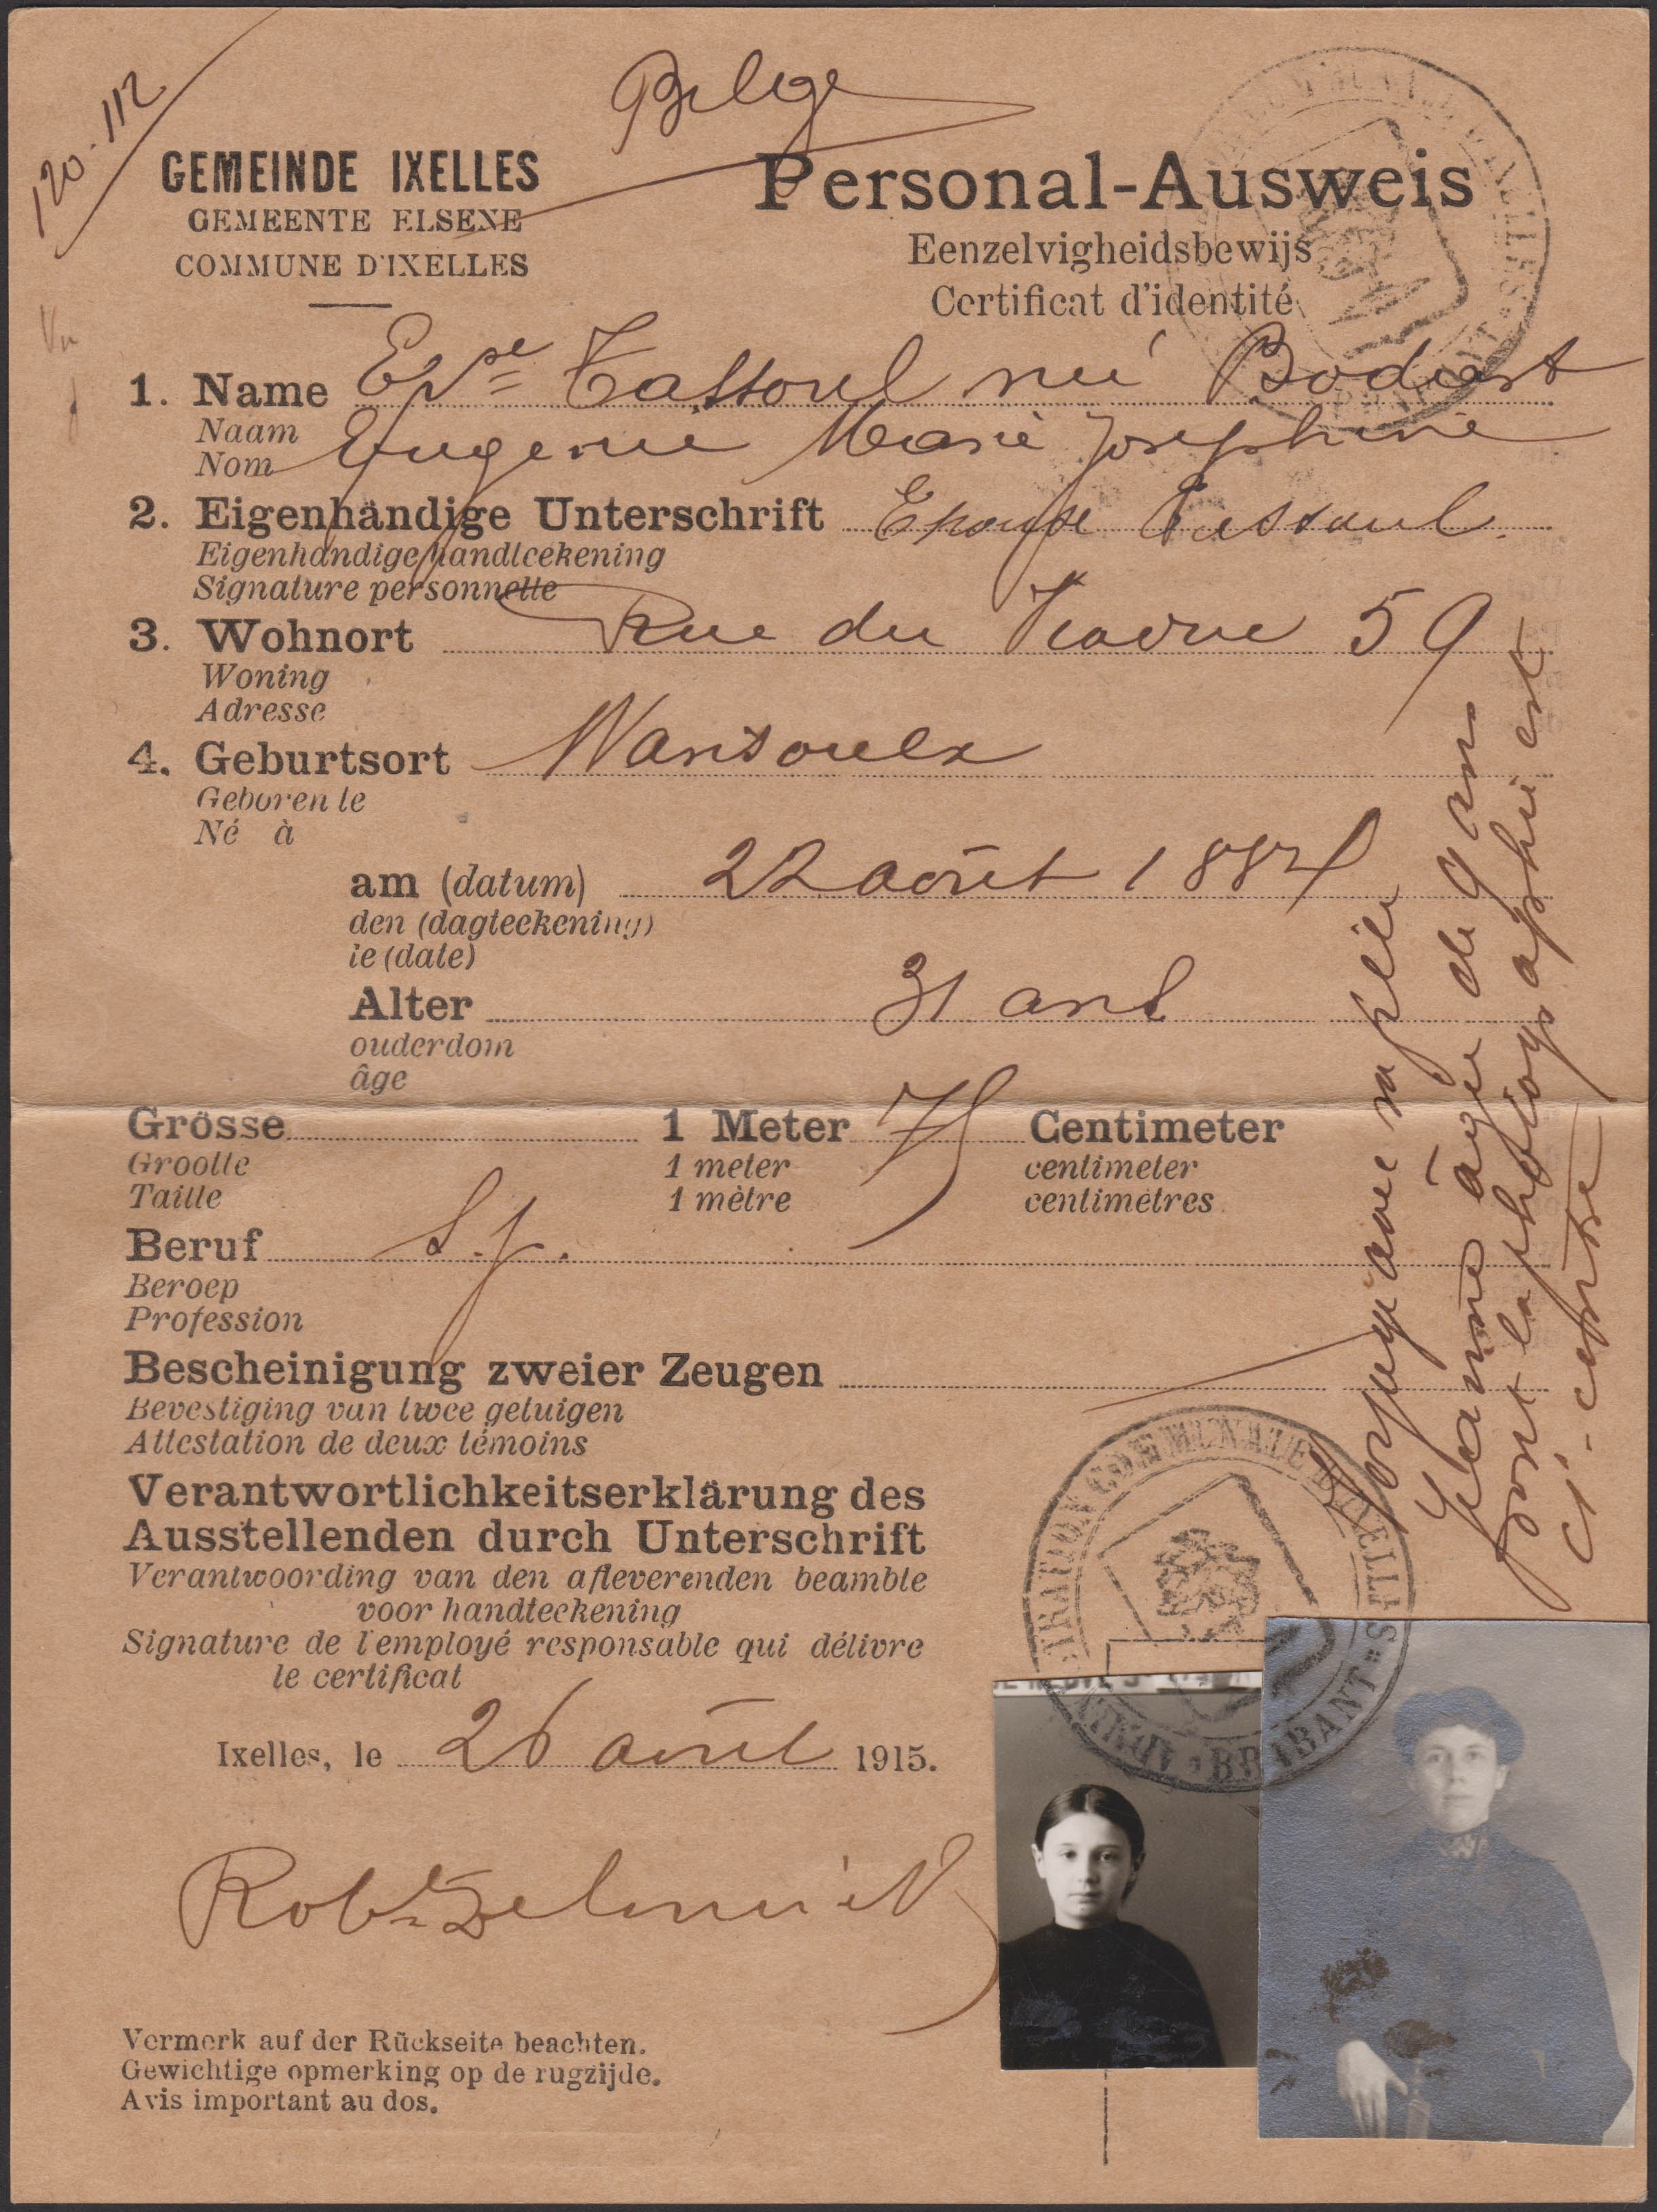 120.112
Belge
GEMEINDE IXELLES
GEMEENTE ELSENE
COMMUNE D'IXELLES
Personal-Ausweis
Eenzelvigheidsbewijs
Certificat d'identité
1. Name Epse Tassoul née Bodart
Naam Eugenie Marie Josephine
Nom
2. Eigenhändige Unterschrift Epouse Tassoul.
Eigenhandige handteekening
Signature personnelle
3. Wohnort Rue du Viaduc 59
Woning
Adresse
4. Geburtsort Wansoulx
Geboren te
Né à
am (datum) 22 août 1884
den (dagteekening)
le (date)
Alter 31 ans
ouderdom
âge
Grösse 1 Meter 75 Centimeter
Grootte 1 meter centimeter
Taille 1 mètre centimètres
Beruf S.p.
Beroep
Profession
Bescheinigung zweier Zeugen
Bevestiging van twee getuigen
Attestation de deux témoins
Verantwortlichkeitserklärung des
Ausstellenden durch Unterschrift
Verantwoording van den afleverenden beambte
voor handteekening
Signature de l'employé responsable qui délivre
le certificat
Ixelles, le 26 août 1915.
Vermerk auf der Rückseite beachten.
Gewichtige opmerking op de rugzijde.
Avis important au dos.
Voyage avec sa fille
Jeanne âgée de 9 ans
dont la photographie est
ci-contre
ADMINISTRATION COMMUNALE D'IXELLES
BRABANT